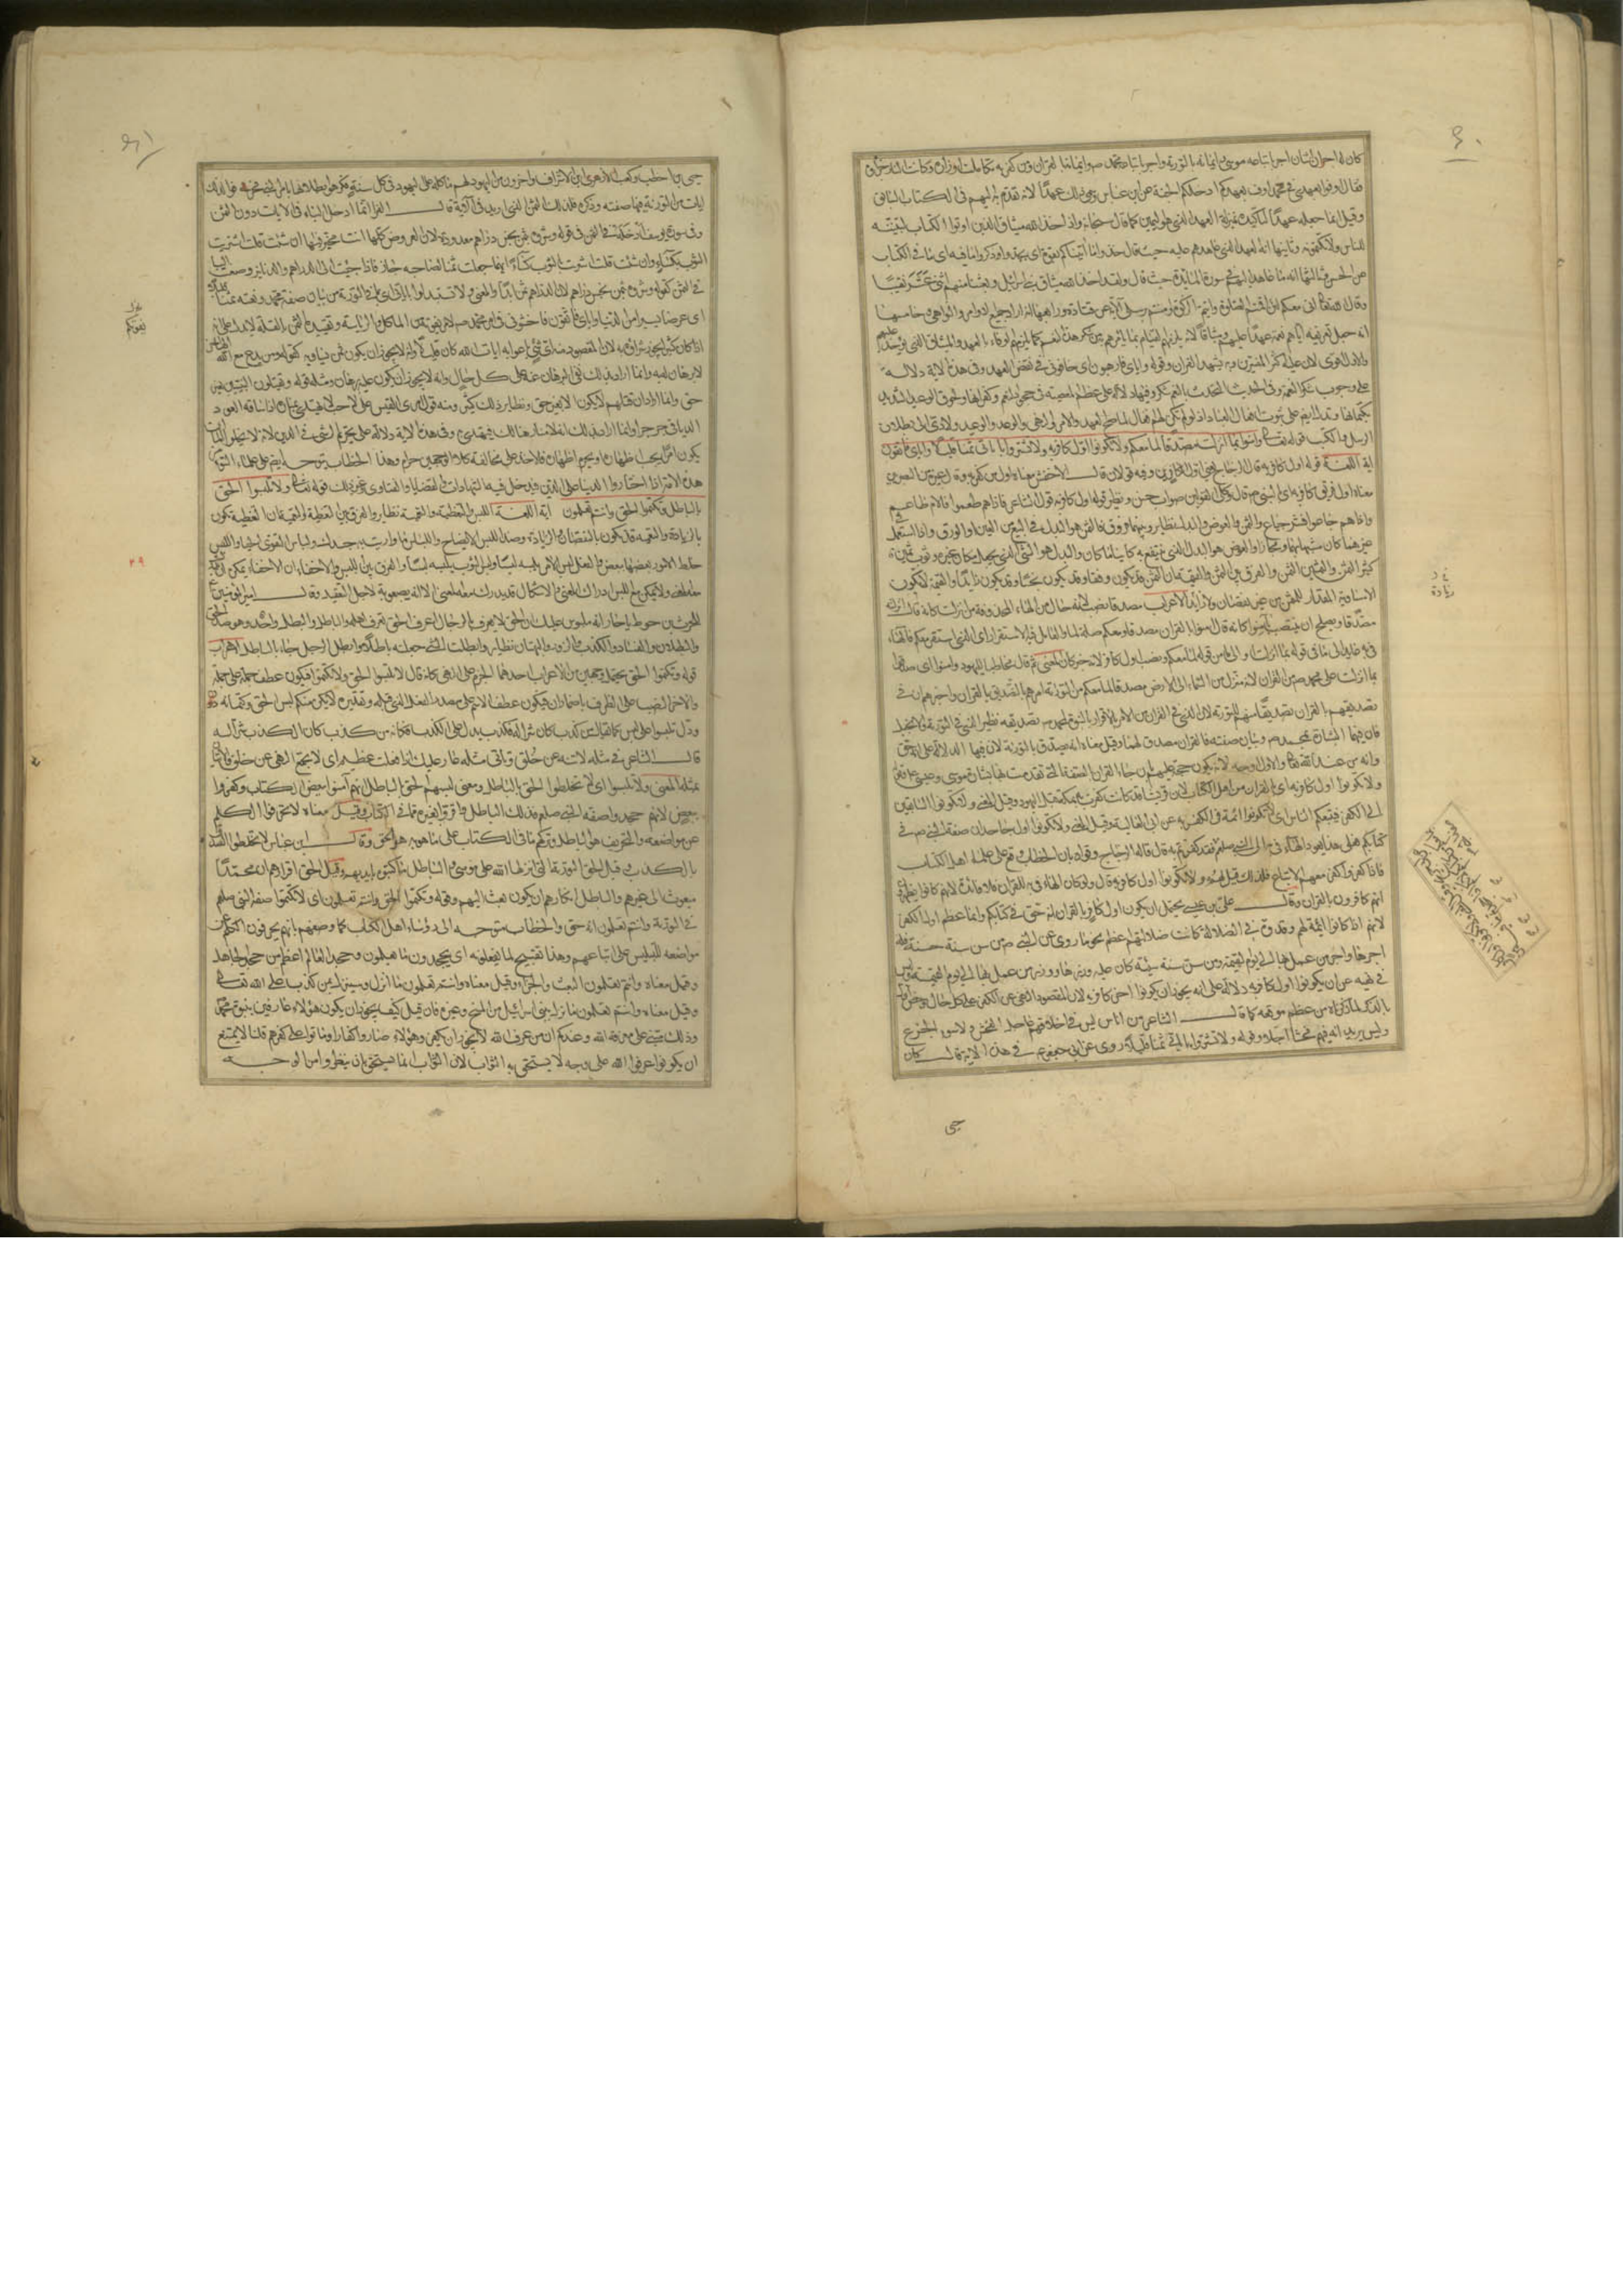 ٤٠
كان له اجران اثنان اجر باتباعه موسى وايمانه بالتورية واجر باتباعه محمد ص وايمانه بالقران ومن كفر به تكاملت اوزاره وكانت النار جزاؤه
فقال اوفوا بعهدي في محمد اوف بعهدكم ادخلكم الجنة عن ابن عباس وسمى ذلك عهدًا لانه تقدم به اليهم في الكتاب السابق
وقيل انما جعله عهدًا لتأكيده بمنزلة العهد الذي هو اليمين كما قال سبحانه واذ اخذ الله ميثاق الذين اوتوا الكتاب لتبيننه
للناس ولا تكتمونه وثانيها انه العهد الذي عاهدهم عليه حيث قال خذوا ما آتيناكم بقوة اي بجد واذكروا ما فيه اي ما في الكتاب
عن الحسن وثالثها انه ما عاهد اليهم في سورة المائدة حيث قال ولقد اخذ الله ميثاق بني اسرائيل وبعثنا منهم اثنى عشر نقيبًا
وقال الله اني معكم لئن اقمتم الصلوة واتيتم الزكوة وامنتم برسلي الآية عن قتادة ورابعها انه اراد جميع الاوامر والنواهي وخامسها
انه جعل تعريفه اياهم نعمه عهدًا عليهم وميثاقًا لانه يلزمهم القيام بما يأمرهم به من شكر هذه النعم كما يلزمهم الوفاء بالعهد والميثاق الذي يؤخذ عليهم
والاول اقوى لان عليه اكثر المفسرين وبه يشهد القران وقوله واياي فارهبون اي خافوني في نقض العهد وفي هذه الاية دلالة
على وجوب شكر النعمة وفي الحديث التحدث بالنعم شكر وفيها دلالة على عظم المعصية في جحود النعم وكفرانها ولحوق الوعيد الشديد
بكتمانها ويدل ايضا على ثبوت افعال العباد اذ لو لم تكن لهم افعال لما صح العهد والامر والنهي والوعد والوعيد ولادى الى بطلان
الرسل والكتب قوله تعالى وامنوا بما انزلت مصدقًا لما معكم ولا تكونوا اول كافر به ولا تشتروا باياتي ثمنا قليلًا واياي فاتقون
اية اللغة قوله اول كافر به قال الزجاج يعني اول الكافرين وفيه قولان قال الاخفش معناه اول من كفر به وقال غيره من البصريين
معناه اول فريق كافر به اي بالنبي ص قال وكلا القولين صواب حسن ونظير قوله اول كافر به قول الشاعر فاذا هم طعموا فالام طاعم
واذا هم جاعوا فشر جياع والثمن والعوض والبدل نظاير وبينها فروق فالثمن هو البدل في البيع من العين او الورق واذا استعمل في
غيرهما كان مشبها بهما ومجازا والعوض هو البدل الذي ينتفع به كاينا ما كان والبدل هو الشيء الذي يجعل مكان غيره وثوب ثمين
كثير الثمن والثمين الثمن والفرق بين الثمن والقيمة ان الثمن قد يكون وفقا وقد يكون بخسًا وقد يكون زايدًا والقيمة لا تكون
الا مساوية المقدار للمثمن من غير نقصان ولا زيادة الاعراب مصدقا نصب لانه حال من الهاء المحذوفة من انزلت كانه قال انزلته
مصدقا ويصلح ان ينتصب بامنوا كانه قال امنوا بالقران مصدقا ومعكم صلة لما والعامل فيه الاستقرار اي الذي استقر معكم والهاء
في به عايد الى ما في قوله بما انزلت او الى ما من قوله لما معكم ونصب اول كافر لانه خبر كان المعنى ثم قال مخاطبا لليهود وامنوا اي صدقوا
بما انزلت على محمد ص من القران لانه منزل من السماء الى الارض مصدقا لما معكم من التورية امرهم بالتصديق بالقران واخبرهم ان في
تصديقهم بالقران تصديقًا منهم للتورية لان الذي في القران من الامر بالاقرار بالنبوة لمحمد ص وتصديقه نظير الذي في التورية والانجيل
فان فيهما البشارة بمحمد ص وبيان صفته فالقران مصدق لهما وقيل معناه انه يصدق بالتورية لان فيها الدلالة على انه حق
وانه من عند الله تعالى والاول اوجه لانه يكون حجة عليهم بان جاء القران بالصفة التي تقدمت بها بشارة موسى وعيسى ع وقوله
ولا تكونوا اول كافر به اي بالقران من اهل الكتاب لان قريشا قد كانت كفرت به بمكة قبل اليهود وقيل المعنى ولا تكونوا السابقين
الى الكفر فيتبعكم الناس اي لا تكونوا ائمة في الكفر به عن ابي العالية وقيل المعنى ولا تكونوا اول جاحدين صفة النبي ص في
كتابكم فعلى هذا يعود الهاء في به الى النبي صلعم فقد كفرتم به قال قاله الزجاج وقواه بان الخطاب وقع على علماء اهل الكتاب
فاذا كفروا كفر معهم الاتباع فلذلك قيل لهم ولا تكونوا اول كافر به قال ولو كان الهاء في به للقران فلا فائدة فيه لانهم كانوا يظهرون
انهم كافرون بالقران وقال علي بن عيسى يحتمل ان يكون اول كافر بالقران انه حق في كتابكم وانما عظم اول الكفر
لانهم اذا كانوا ائمة لهم وقدوة في الضلالة كانت ضلالتهم اعظم نحو ما روي عن النبي ص من سن سنة حسنة فله
اجرها واجر من عمل بها الى يوم القيمة ومن سن سنة سيئة كان عليه وزرها ووزر من عمل بها الى يوم القيمة وليس
في نهيه عن ان يكونوا اول كافر به دلالة على انه يجوز ان يكونوا اخر كافر به لان المقصود النهي عن الكفر على كل حال وخص اولا
بالذكر لما ذكرناه من عظم موقعه كما قال الشاعر من اناس ليس في اخلاقهم عاجل الفحش ولا سوء الجزع
وليس يريد انه فيهم فحشا آجلا وقوله ولا تشتروا باياتي ثمنًا قليلًا روي عن ابي جعفر ع في هذه الاية قال كان
حيي
زيادة
٤١
حيي بن اخطب وكعب بن الاشرف واخرون من اليهود لهم مأكلة على اليهود في كل سنة فكرهوا بطلانها بامر النبي ص فحرفوا لذلك
ايات من التورية فيها صفته وذكره فذلك الثمن الذي اريد في الآية قال الفراء انما ادخل الباء في الايات دون الثمن
وفي سورة يوسف ادخله في الثمن في قوله وشروه بثمن بخس دراهم معدودة لان العروض كلها انت مخير فيها ان شئت قلت اشتريت
الثوب بكساء وان شئت قلت اشتريت بالثوب كساءً ايهما جعلت ثمنا لصاحبه جاز فاذا جئت الى الدراهم والدنانير وضعت الباء
في الثمن كقوله وشروه بثمن بخس دراهم لان الدراهم ثمن ابدًا والمعنى ولا تستبدلوا باياتي اي بما في التورية من بيان صفة محمد ونعته ثمنًا قليلا
اي عرضا يسيرا من الدنيا واياي فاتقون فاخشوني في امر محمد ص لا ما يفوتكم من الماكل والرياسة وتقييده الثمن بالقلة لا يدل على انه
اذا كان كثيرا يجوز شراؤه به لان المقصود منه ان اي شيء باعوا به ايات الله كان قليلًا وانه لا يجوز ان يكون ثمن يساويه كقوله ومن يدع مع الله الها اخر
لا برهان له به وانما اراد بذلك نفي البرهان عنه على كل حال وانه لا يجوز ان يكون عليه برهان ومثله قوله ويقتلون النبيين بغير
حق وانما اراد ان قتلهم لا يكون الا بغير حق ونظاير ذلك كثيرة ومنه قول امرئ القيس على لاحب لا يهتدى بمناره اذا سافه العود
الديافي جرجرا وانما اراد بذلك انه لا منار هنالك فيهتدى به وفي هذه الاية دلالة على تحريم اخذ الرشى في الدين لانه لا يخلو اما ان
يكون امرًا يجب اظهاره او يحرم اظهاره فالاخذ على مخالفة كلا الوجهين حرام وهذا الخطاب يتوجه ايضا على علماء السوء من
هذه الامة اذا اختاروا الدنيا على الدين فيدخل فيه الشهادات والقضايا والفتاوى وغير ذلك قوله تعالى ولا تلبسوا الحق
بالباطل وتكتموا الحق وانتم تعلمون اية اللغة اللبس والتغطية والتعمية نظاير والفرق بين التغطية والتعمية ان التغطية تكون
بالزيادة والتعمية قد يكون بالنقصان والزيادة وضد اللبس الايضاح واللباس ما واريت به جسدك ولباس التقوى الحياء واللبس
خلط الامور بعضها ببعض والفعل لبس الامر يلبسه لبسًا ولبس الثوب يلبسه لبسًا والفرق بين اللبس والاخفاء ان الاخفاء يمكن ان يدرك
معه المعنى ولا يمكن مع اللبس ادراك المعنى والاشكال قد يدرك معه المعنى الا انه بصعوبة لاجل التعقيد وقال امير المؤمنين ع
للحرث بن حوط يا حار انه ملبوس عليك ان الحق لا يعرف بالرجال اعرف الحق تعرف اهله والباطل والبطل واحد وهو ضد الحق
والبطلان والفساد والكذب والزور والبهتان نظاير وابطلت الشيء جعلته باطلًا وابطل الرجل جاء بالباطل الاعراب
قوله وتكتموا الحق يحتمل وجهين من الاعراب احدهما الجزم على النهي كانه قال لا تلبسوا الحق ولا تكتموه فيكون عطف جملة على جملة
والاخر النصب على الظرف باضمار ان فيكون عطف الاسم على مصدر الفعل الذي قبله وتقديره لا يكن منكم لبس الحق وكتمانه
ودل تلبسوا على لبس كما يقال من كذب كان شرًا له فكذب يدل على الكذب فكانه من كذب كان الكذب شرًا له
قال الشاعر في مثله لا تنه عن خلق وتاتي مثله عار عليك اذا فعلت عظيم اي لا يجتمع النهي عن خلق والاتيان
بمثله المعنى ولا تلبسوا اي لا تخلطوا الحق بالباطل ومعنى لبسهم الحق بالباطل انهم آمنوا ببعض الكتاب وكفروا
ببعض لانهم جحدوا صفة النبي صلعم فذلك الباطل واقروا بغيره مما في الكتاب وقيل معناه لا تحرفوا الكلم
عن مواضعه والتحريف هو الباطل وترككم ما في الكتاب على ما هو به هو الحق وقال ابن عباس لا تخلطوا الصدق
بالكذب وقيل الحق التورية التي انزلها الله على موسى والباطل ما كتبوه بايديهم وقيل الحق اقرارهم ان محمدًا
مبعوث الى غيرهم والباطل انكارهم ان يكون بعث اليهم وقوله وتكتموا الحق وانتم تعلمون اي لا تكتموا صفة النبي صلعم
في التورية وانتم تعلمون انه حق والخطاب متوجه الى رؤساء اهل الكتاب كما وصفهم بانهم يحرفون الكلم عن
مواضعه للتلبيس على اتباعهم وهذا تقبيح لما يفعلونه اي يجحدون ما يعلمون وجحد العالم اعظم من جحد الجاهل
وقيل معناه وانتم تعلمون البعث والجزاء وقيل معناه وانتم تعلمون ما انزل وسينزل بمن كذب على الله تعالى
وقيل معناه وانتم تعلمون ما نزل ببني اسرائيل من المسخ وغيره فان قيل كيف يجوز ان يكون هؤلاء عارفين بنبوة محمد
وذلك مبني على معرفة الله وعندكم ان من عرف الله لا يجوز ان يكفر وهؤلاء صاروا كفارا وماتوا على كفرهم قلنا لا يمتنع
ان يكونوا عرفوا الله على وجه لا يستحق به الثواب لان الثواب انما يستحق بان ينظروا من الوجه
يفوتكم
٣٩